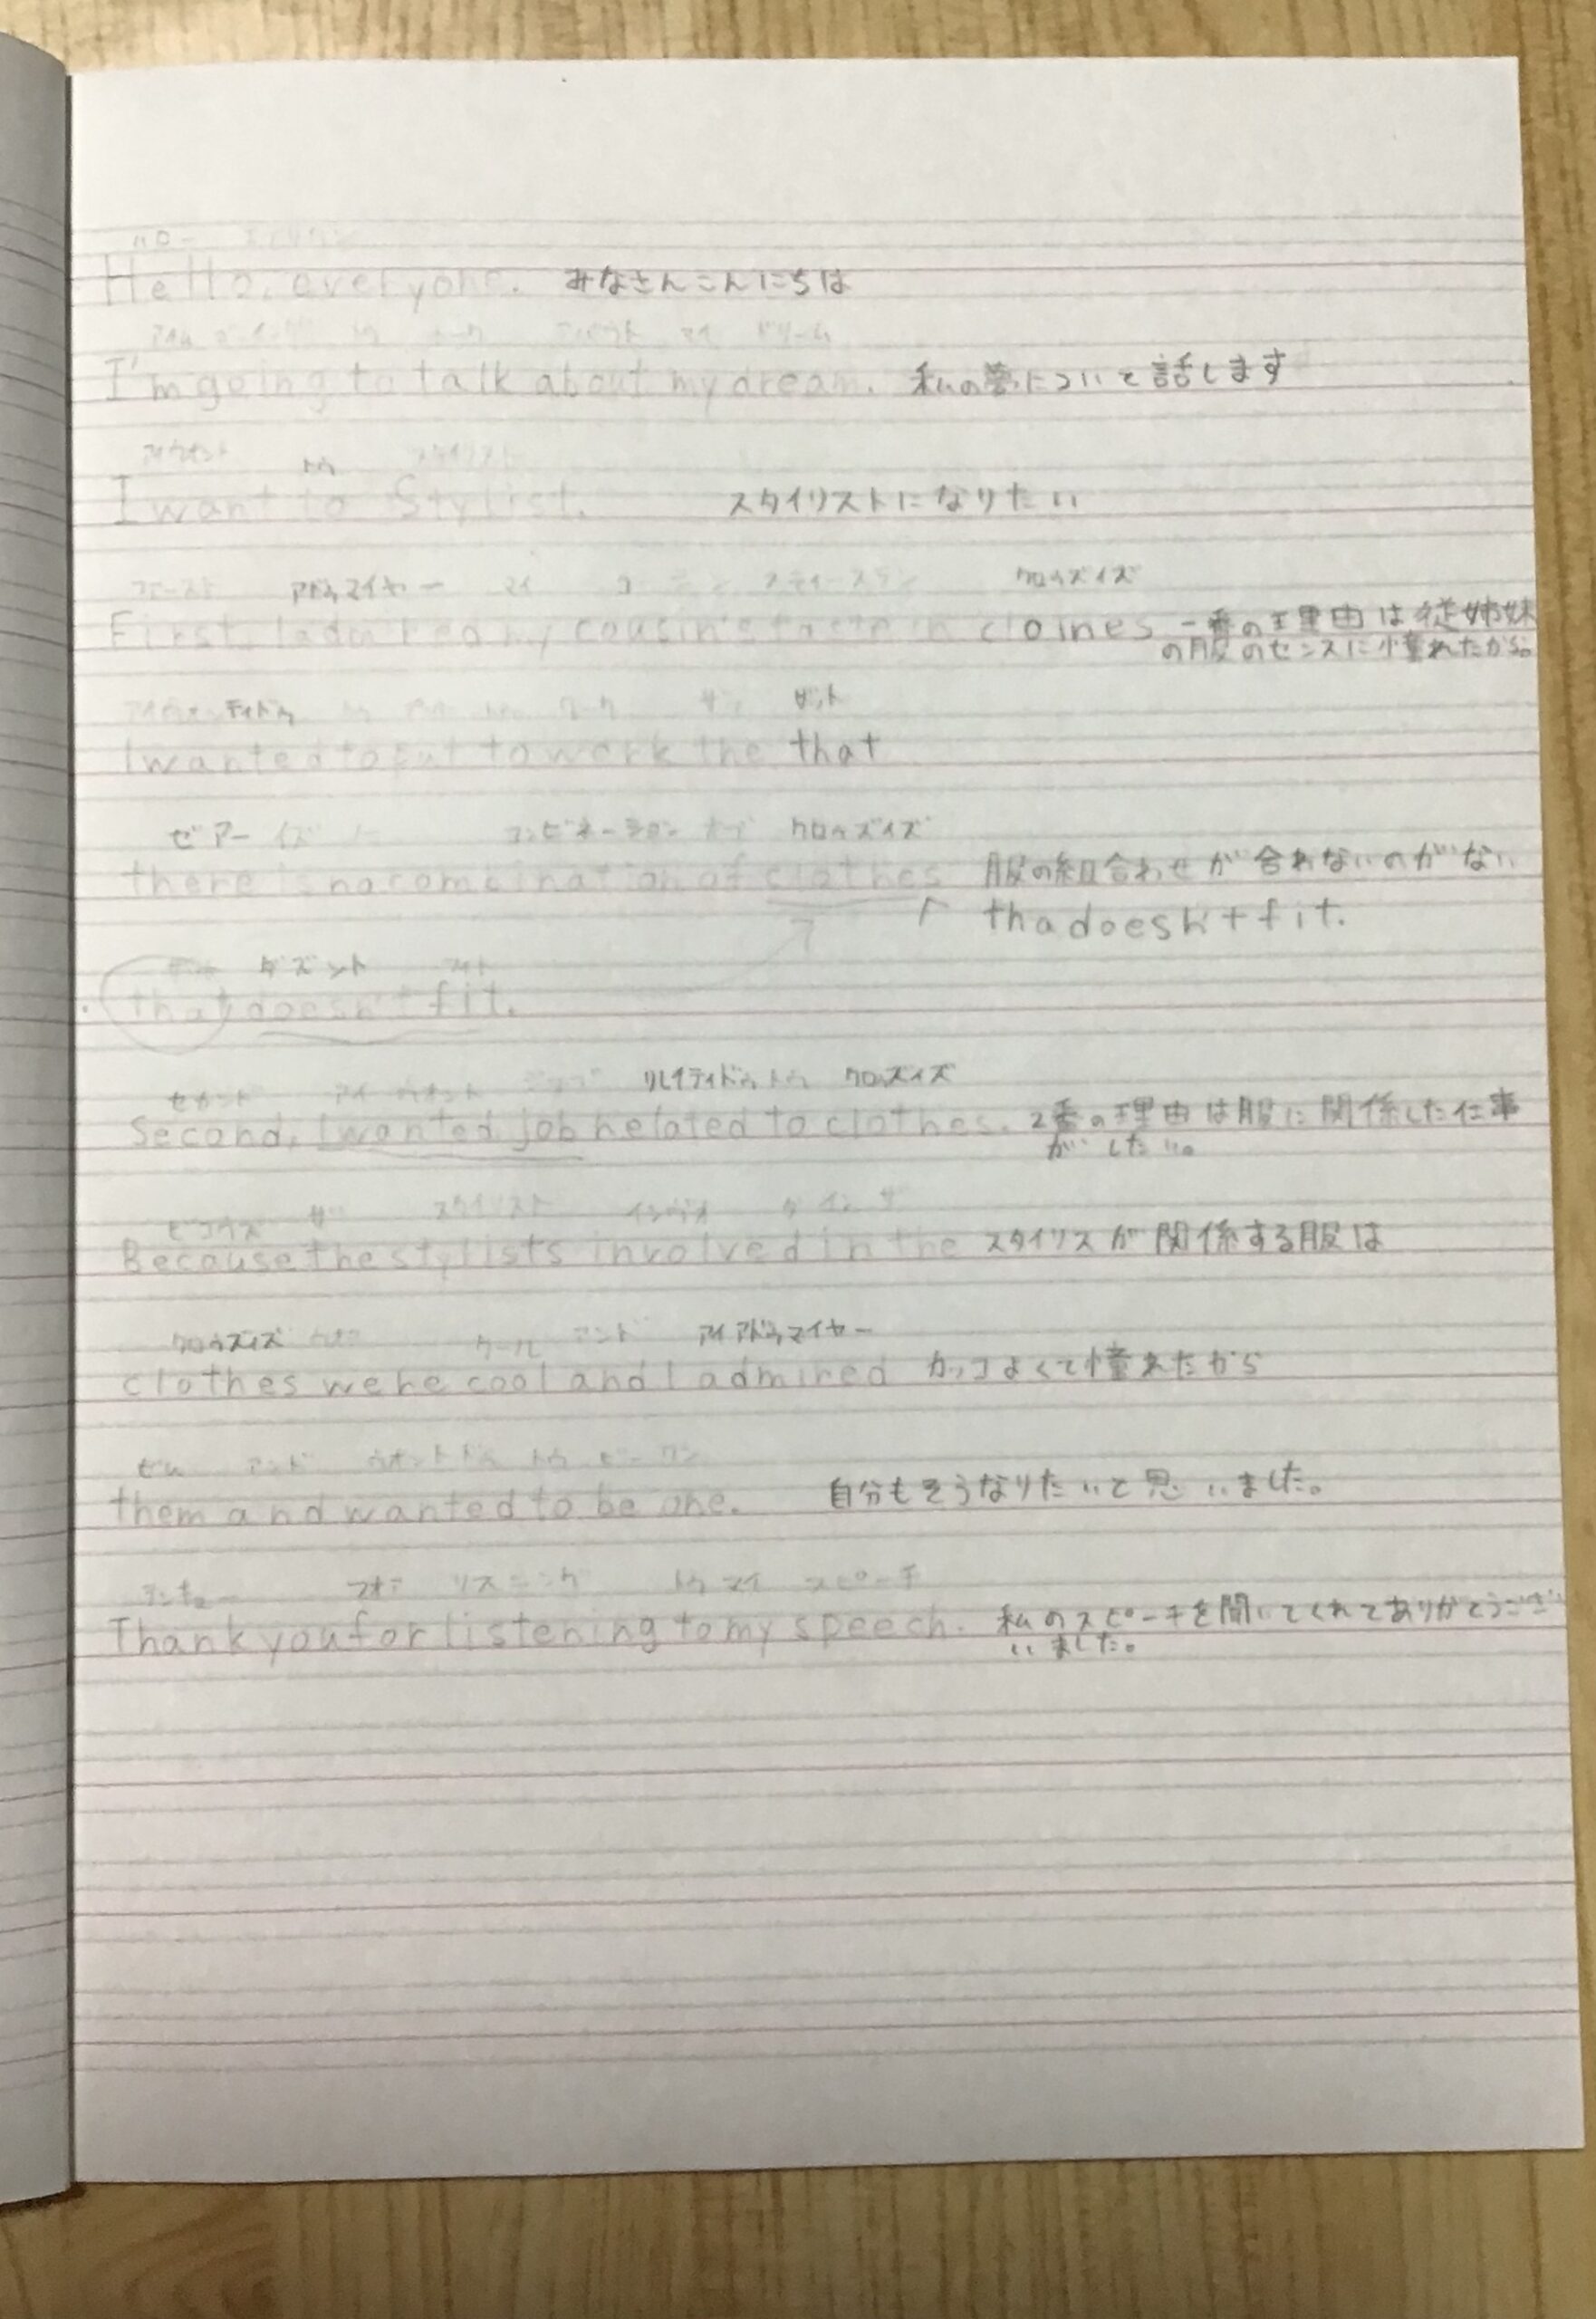 ハロー エブリワン
Hello, everyone. みなさんこんにちは
アイム ゴーイング トゥ トーク アバウト マイ ドリーム
I'm going to talk about my dream. 私の夢について話します
アイウォント トゥ スタイリスト
I want to Stylist. スタイリストになりたい
ファースト アドゥマイヤー マイ クロウズイズ
First, I admired my cousin's taste in clothes 一番の理由は従姉妹
の服のセンスに憧れたから。
ティドゥ トゥ トゥ ワーク ザ ザット
I wanted to put to work the that
ゼアー イズ コンビネーション オブ クロウズイズ
there is no combination of clothes 服の組合わせが合わないのがない
tha doesn't fit.
ダズント
that doesn't fit.
セカンド アイ ウォント リレイティドゥ トゥ クロウズイズ
Second, I wanted job related to clothes. 2番の理由は服に関係した仕事
がしたい。
ビコウズ ザ スタイリスト イン ザ
Because the stylists involved in the スタイリスが関係する服は
クロウズイズ クール アンド アイ アドゥマイヤー
clothes were cool and I admired カッコよくて憧れたから
ゼム アンド トゥ ビー ワン
them and wanted to be one. 自分もそうなりたいと思いました。
サンキュー フォア リスニング トゥ マイ スピーチ
Thank you for listening to my speech. 私のスピーチを聞いてくれてありがとうござ
いました。